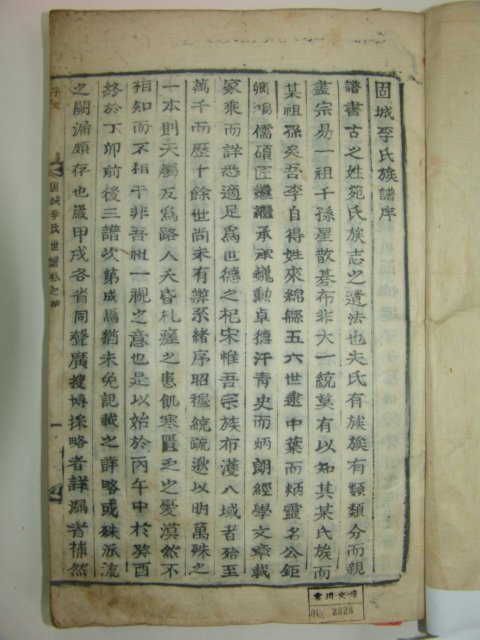 固城李氏族譜序
譜書古之姓苑氏族志之遺法也夫氏有族族有類類分而親
盡宗易一祖千孫星散碁布非大一統莫有以知其某氏族而
某祖孫矣吾李自得姓來綿縣五六世逮中葉而炳靈名公鉅
卿鴻儒碩匠繼繼承承巍勳卓德汗靑史而炳朗經學文章載
家乘而詳悉適足爲世德之杞宋惟吾宗族布濩八域者殆至
萬千而歷十餘世尚未有濟系緖序昭穆統疏邇以明萬殊之
一本則天屬反爲路人夭昏札瘥之患飢寒匱乏之憂漠然不
相知而不相干非吾祖一視之意也是以始於丙午中於癸酉
終於丁卯前後三譜次第成焉猶未免記載之詳略或殊派流
之闕漏頗存也歲甲戌各省同聲廣搜博採略者詳漏者補然
固城李氏世譜卷之
一
2828